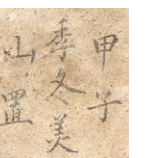 甲子
季冬美
山置